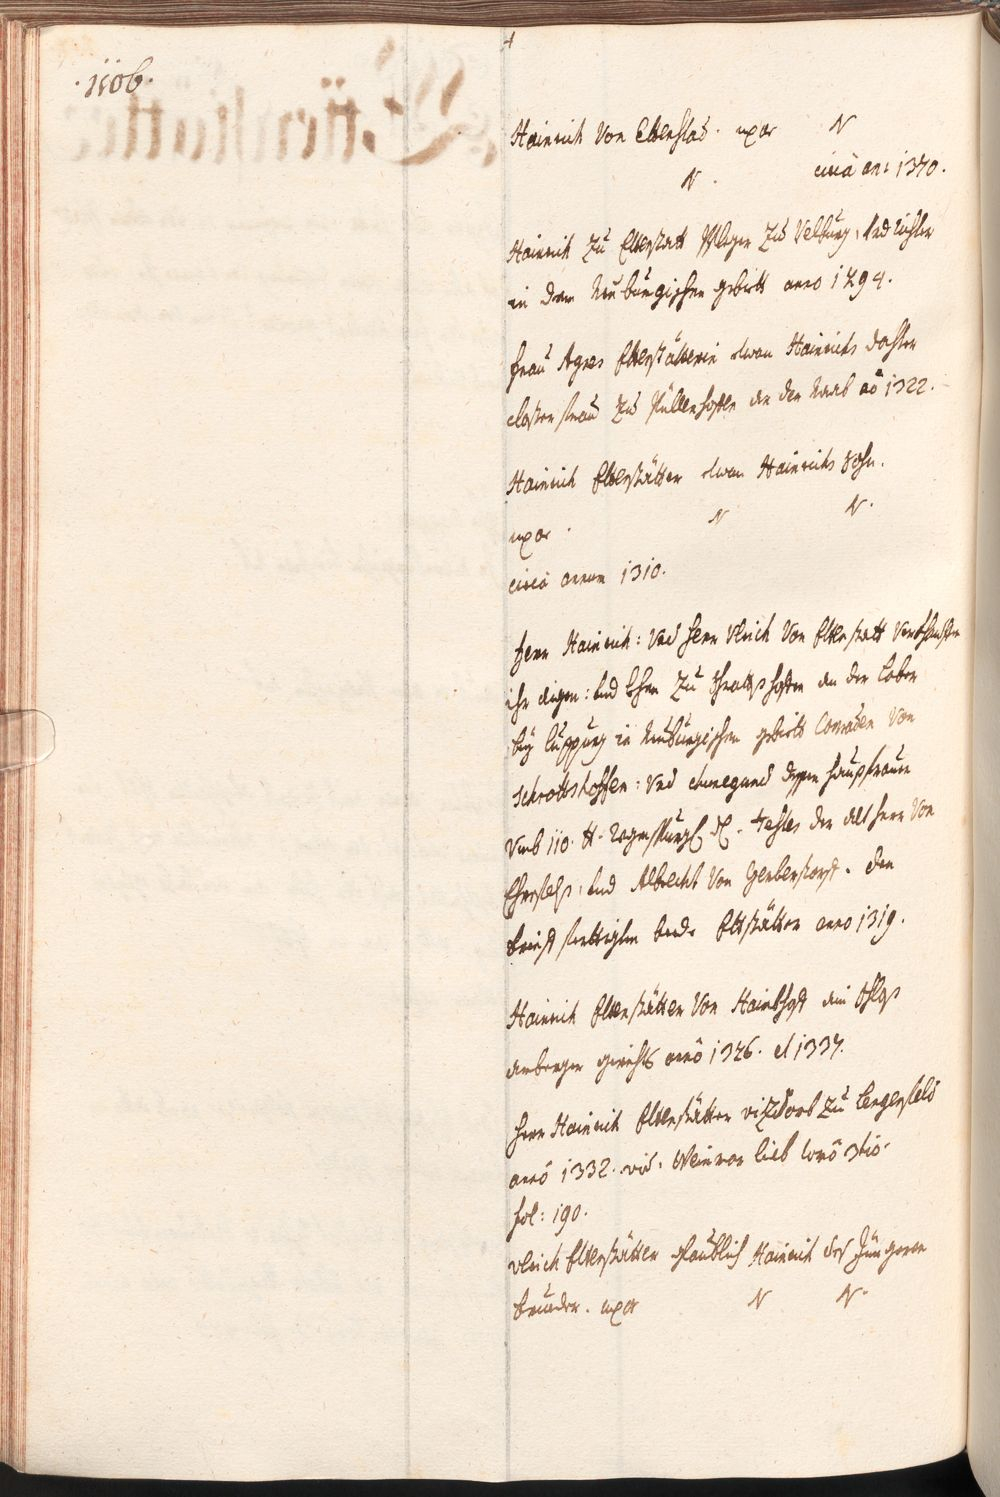 ·1106·
Hainrich Von Ettenstad. uxor N
N. circà an: 1370.
Hainrich Zu Ettenstatt Pfleger Zu Velburg, Und Richter
in dem Neuburgischen gebiett anno 1294.
frau Agnes Ettenstätterin etwan Hainrichs dochter
closter frau Zu Püllenhofen an der Naab aõ 1322.
Hainrich Ettenstätter etwan Hainrichs Sohn.
uxor. N N.
circà annum 1310.
herr Hainrich: Und herr Ulrich Von Ettenstatt Verkhauften
ihr aigen: Und Lehen Zu Schrottshofen an der Laber
bey Luppurg in Neuburgischen gebiett Conraden Von
Schrottshoffen: Und Chunegund dessen haussfrauen
Umb 110. tt. Regenspurg. der alt herr Von
Ehrnfels, Und Albrecht Von Gerberstorff. den
brief ferttigten beede Ettstätter anno 1319.
Hainrich Ettenstätter Von
amberger gerichts anno 1326. et 1337.
herr Hainrich Ettenstätter vizdomb Zu Lengenfeld
anno 1332. vid. Weinrar lieb tomo 3tio.
fol: 190.
Ulrich Ettenstätter glaublich Hainrich des Jüngeren
bruder. uxor N N.